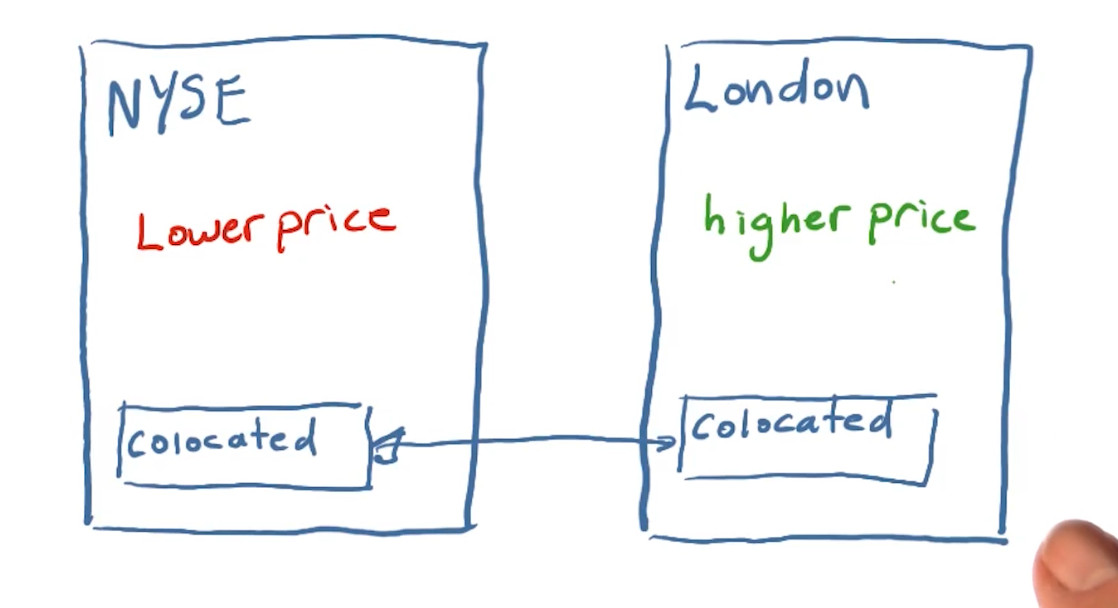 NYSE
Lower price
colocated
London
higher price
colocated